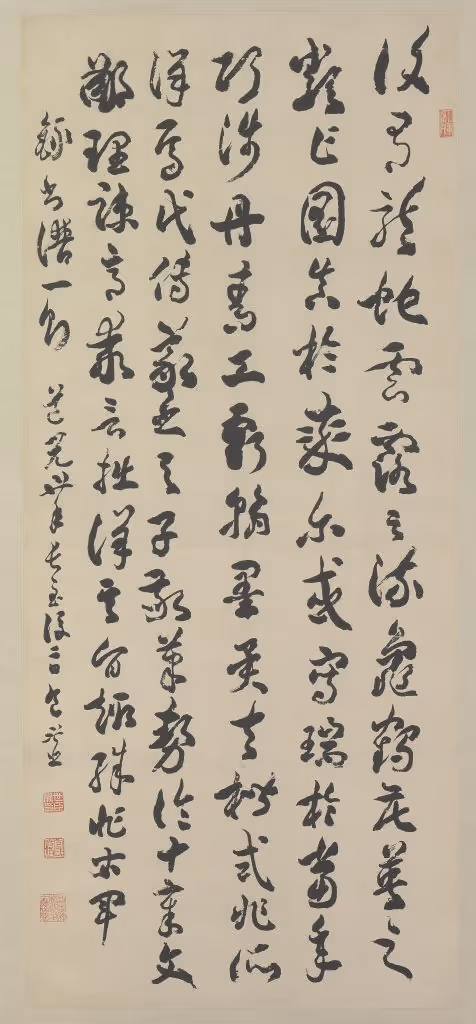 復有龍蛇雲露之流龜鶴花英之
類乍圖真於率爾或寫瑞於當年
巧涉丹青工虧翰墨異夫楷式非所
詳焉代傳羲之與子敬筆勢論十章文
鄙理疎意乖言拙詳其旨趣殊非右軍
錄書譜一節 道光年長至後二日